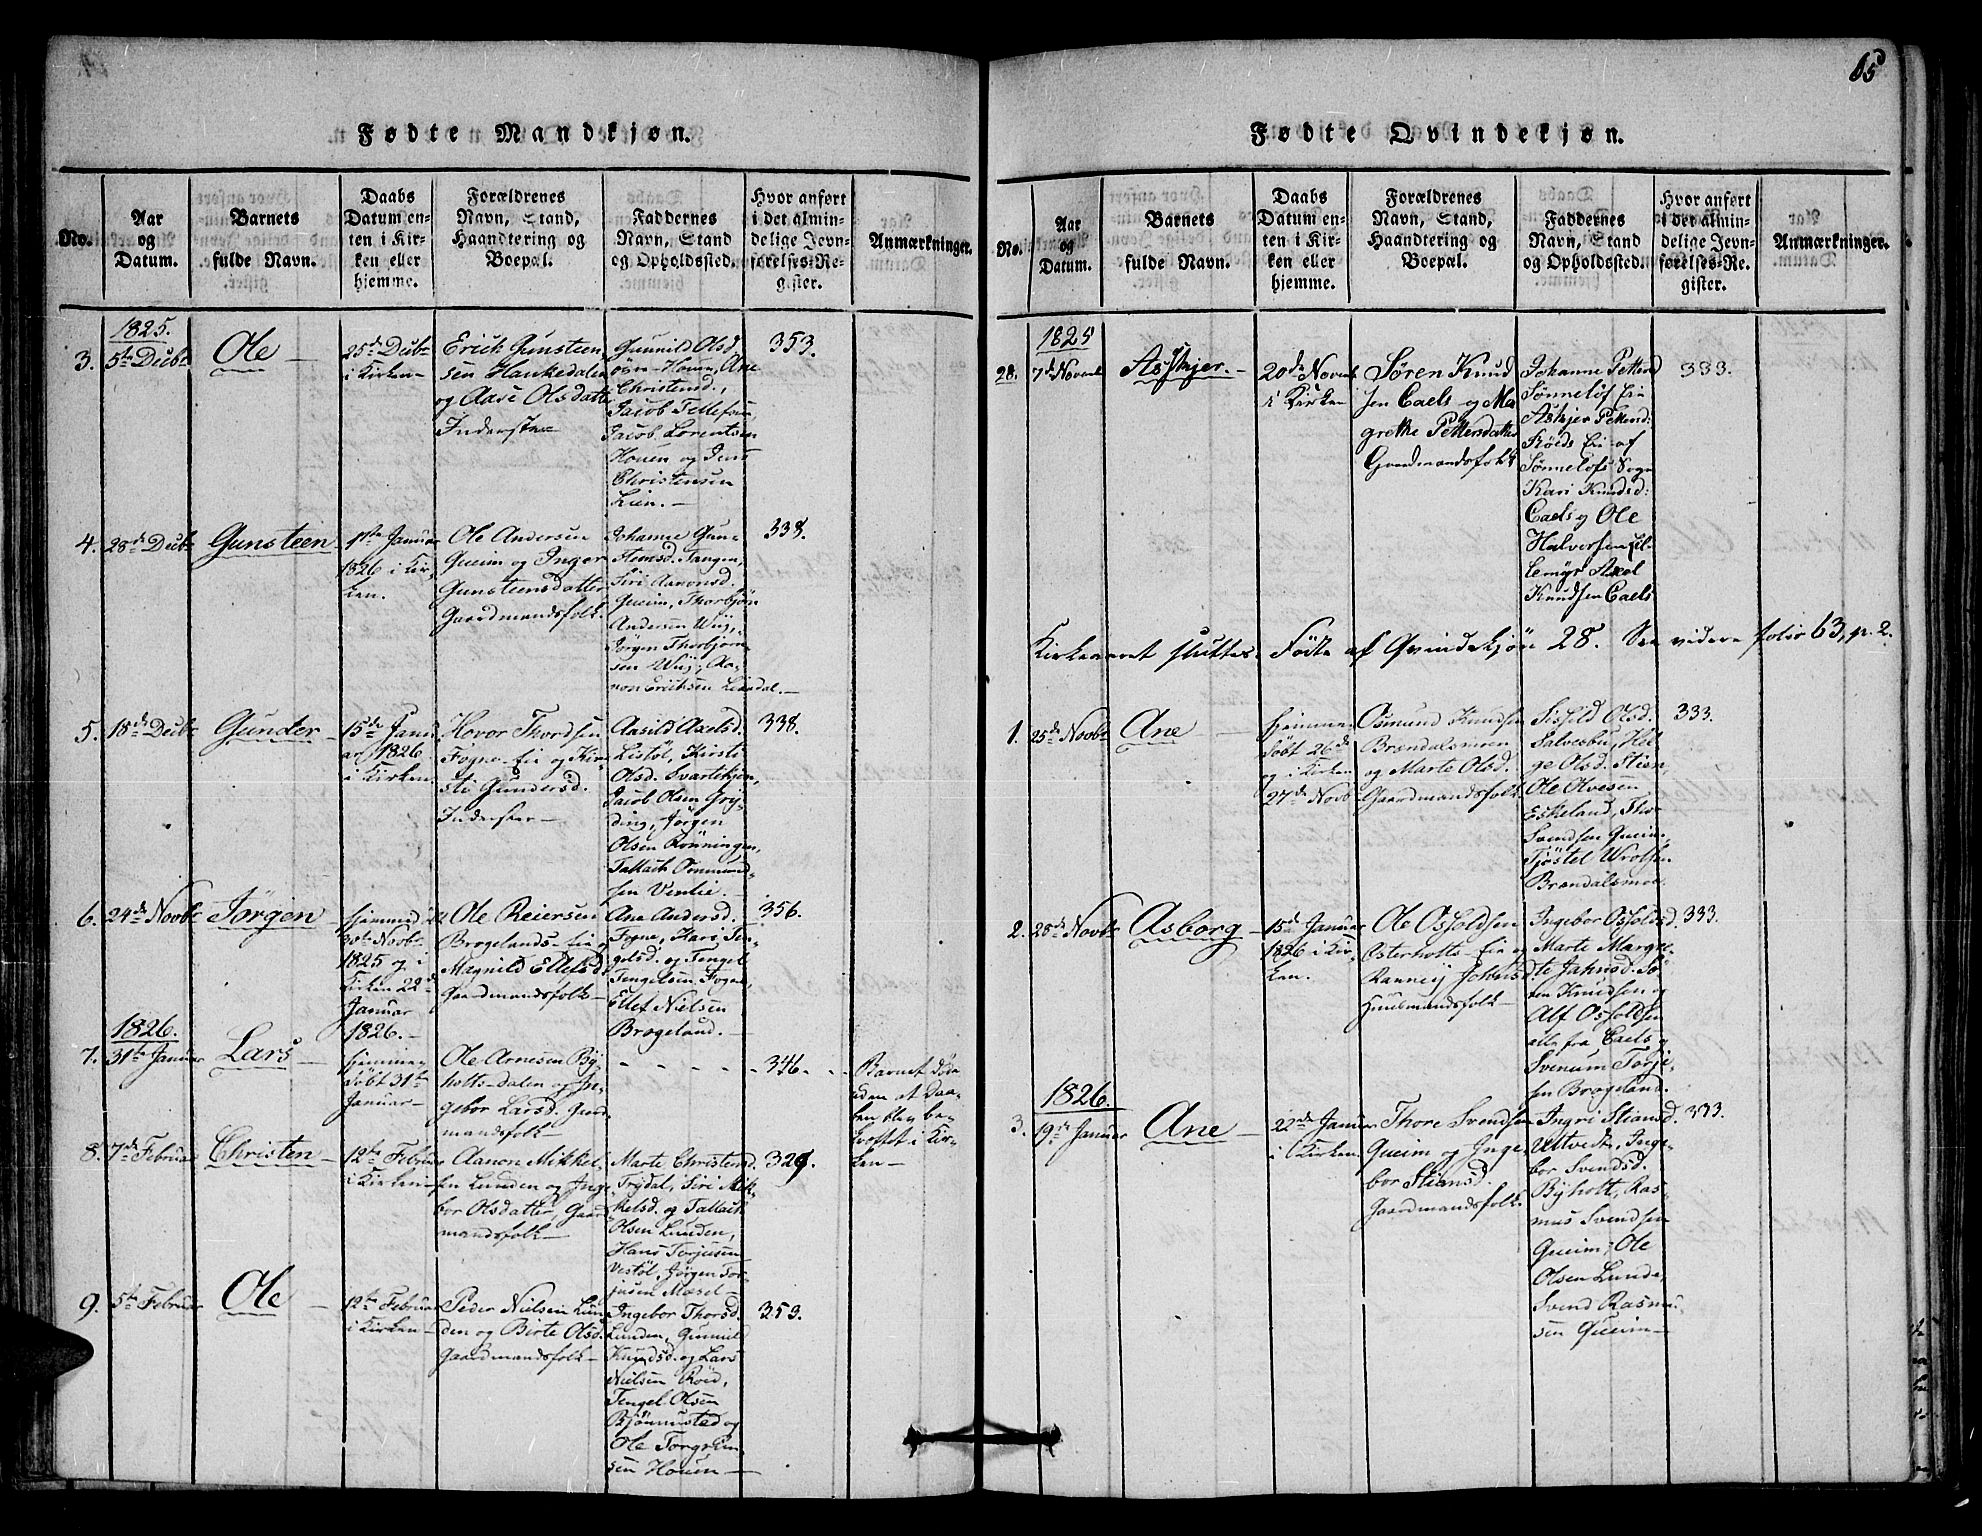 65
Fødte Mandkjøn.
No.
Aar
og
Datum.
Barnets
fulde Navn.
Daabs
Datum en-
ten i Kir-
ken eller
hjemme.
Forældrenes
Navn, Stand,
Haandtering og
Boepæl.
Faddernes
Navn, Stand
og Opholdssted.
Hvor anført
i det almin-
delige Jevn-
førelses-Re-
gister.
Anmærkninger.
1825.
3.
5te Decbr
Ole
25de Decbr
i Kirken
Erick Gunsteen
sen Haukedalen
og Aase Olsdatter
Inderster
Gunnild Olsd
Houen, Ane
Christensd.,
Jacob Tellefsen,
Jacob Lorentsen
Houen og Jens
Christensen
Lien.
353.
4.
28de Decbr
Gunsteen
1ste Januar
1826 i Kir-
ken.
Ole Andersen
Gueim og Inger
Gunsteensdatter
Gaardmandsfolk.
Johanne Gun-
steensd. Tangen,
Siri Aanonsd.
Gueim, Thorbjøn
Andersen Wiig,
Jørgen Thorbjørn
sen Wiig, Aa-
non Ericksen Lindal.
338.
5.
18de Decbr
Gunder
15de Janu
ar 1826
i Kirken
Hovor Thordsen
Fogne Eie og Kir-
sti Gundersd.
Inderster
Aasild Axelsd.
Listöl, Kirsti
Olsd. Svartekjen,
Jacob Olsen Gry-
ding, Jörgen
Olsen Rönningen,
Tallack Ommund
sen Ventie.
338.
6.
24de Novbr
Jörgen
hjemmed
30te Novbr
1825 og i
Kirken 22de
Januar
1826.
Ole Reiersen
Brogelands Eie og
Magnild Ellefsd
Gaardmandsfolk
Ane Andersd.
Fogne, Kari Ten-
gelsd. og Tengel
Tengelsen Fogne,
Ellef Nielsen
Brogeland.
356.
1826.
7.
31te Januar
Lars
hjemme
döbt 31te
Januar
Ole Arnesen By-
holts-dalen og In-
gebor Larsd. Gaard
mandsfolk
346.
Barnet döde
uden at Daa-
ben blev be-
kræftet i Kir-
ken
8.
7de Februar
Christen
12te Februar
i Kirken
Aanon Mikkel-
sen Lunden og Inge-
bor Olsdatter, Gaard
mandsfolk
Marte Christensd.
Trydal, Siri Mik-
kelsd. og Tallack
Olsen Lunden,
Hans Torjusen
Vestöl, Jørgen Tor-
jusen Mæsel
329.
9.
5te Februar
Ole
12te Februar
i Kirken
Peder Nielsen Lun
den og Birte Olsd.
Gaardmandsfolk
Ingebor Thorsd.
Lunden, Gunnild
Knudsd. og Lars
Nielsen Röed,
Tengel Olsen
Bjönnusted og
Ole Torgrim
sen Houen
353.
Fødte Qvindekjøn.
No.
Aar
og
Datum.
Barnets
fulde Navn.
Daabs
Datum en-
ten i Kir-
ken eller
hjemme.
Forældrenes
Navn, Stand,
Haandtering og
Boepæl.
Faddernes
Navn, Stand
og Opholdssted.
Hvor anført
i det almin-
delige Jevn-
førelses-Re-
gister.
Anmærkninger.
1825
28.
7de Novbr
Asskjer.
20de Novbr
i Kirken
Søren Knud
sen Caels og Ma
grethe Pettersdatter
Gaardmandsfolk
Johanne Petterd
Sönnelöf Eie
Askjer Petterd:
Röeds Eie af
Sönnelöfs Sogn
Kari Knudsd:
Caels og Ole
Halversen Sel-
lemyr Axel
Knudsen Caels
333.
Kirkeaaret sluttes. Födte af Qvindekjön 28. See videre folio 63, p. 2.
1.
25de Novbr
Ane
hjemme
döbt 26de
og i Kirken
27de Novb
Osmund Knudsen
Brændalsmoen
og Marte Olsd.
Gaardmandsfolk
Sisfeld Olsd.
Salvesbu, Hel-
ge Olsd. Stien,
Ole Olvesen
Eskeland, Thor
Svendsen Gueim,
Tjöstel Wrolsen
Brændalsmoe.
333.
2.
28de Novbr
Asborg
15de Januar
1826 i Kir-
ken.
Ole Osfoldsen
Osterholts Eie og
Ranneij Johnsd
Huusmandsfolk
Ingebor Osfoldsd.
Marte Margre-
te Jahnsd. Sö-
ren Knudsen og
Alf Osfoldsen
alle fra Caels og
Svenum Torje-
sen Brogeland.
333.
1826.
3.
19de Januar
Ane
22de Januar
i Kirken
Thore Svendsen
Gueim og Inge-
bor Stiansd.
Gaardmandsfolk.
Ingri Stiansd.
Ultvedt, Inge-
bor Svendsd.
Byholt, Ras-
mus Svendsen
Gueim, Ole
Olsen Lunde,
Svend Rasmu-
sen Gueim
333.